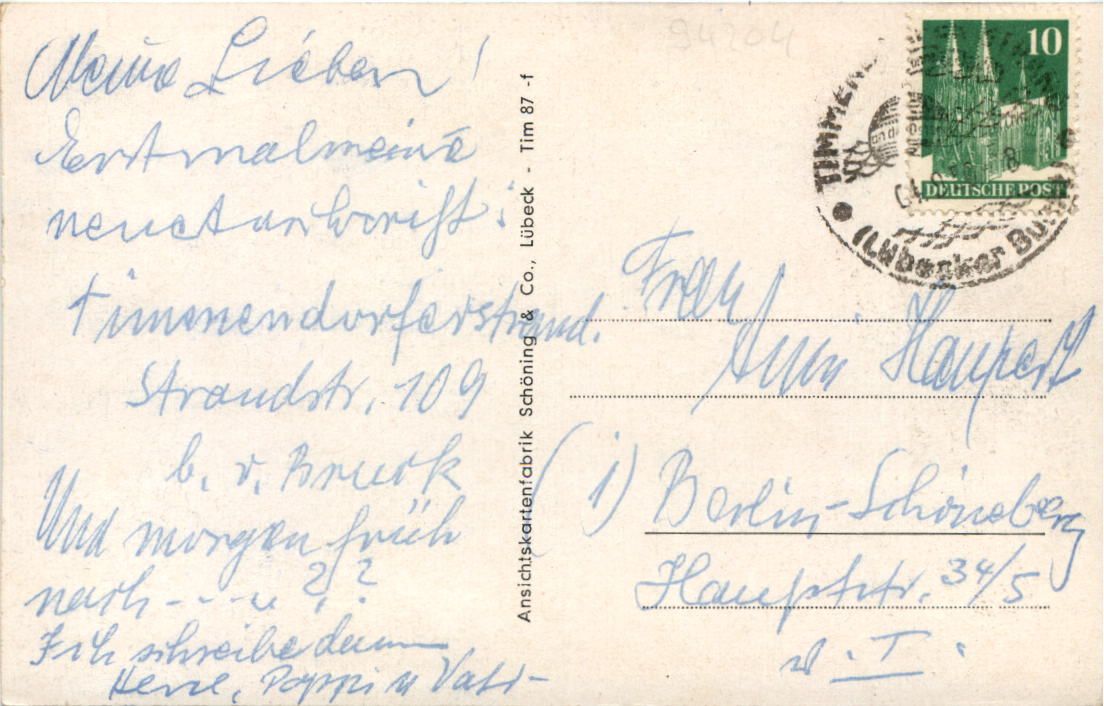 Meine Lieben!
Erstmal meine
neue Anschrift:
Timmendorferstrand.
Strandstr. 109
b. v. Bruck
Und morgen früh
nach - - - u ? ?
Ich schreibe dann
Poppi u Vati -
Ansichtskartenfabrik Schöning & Co., Lübeck - Tim 87 -f
94204
10
DEUTSCHE POST
TIMMEND
(Lübecker Bu
Frau
Anni Haupert
(1) Berlin-Schöneberg
Hauptstr. 34/5
v. I.